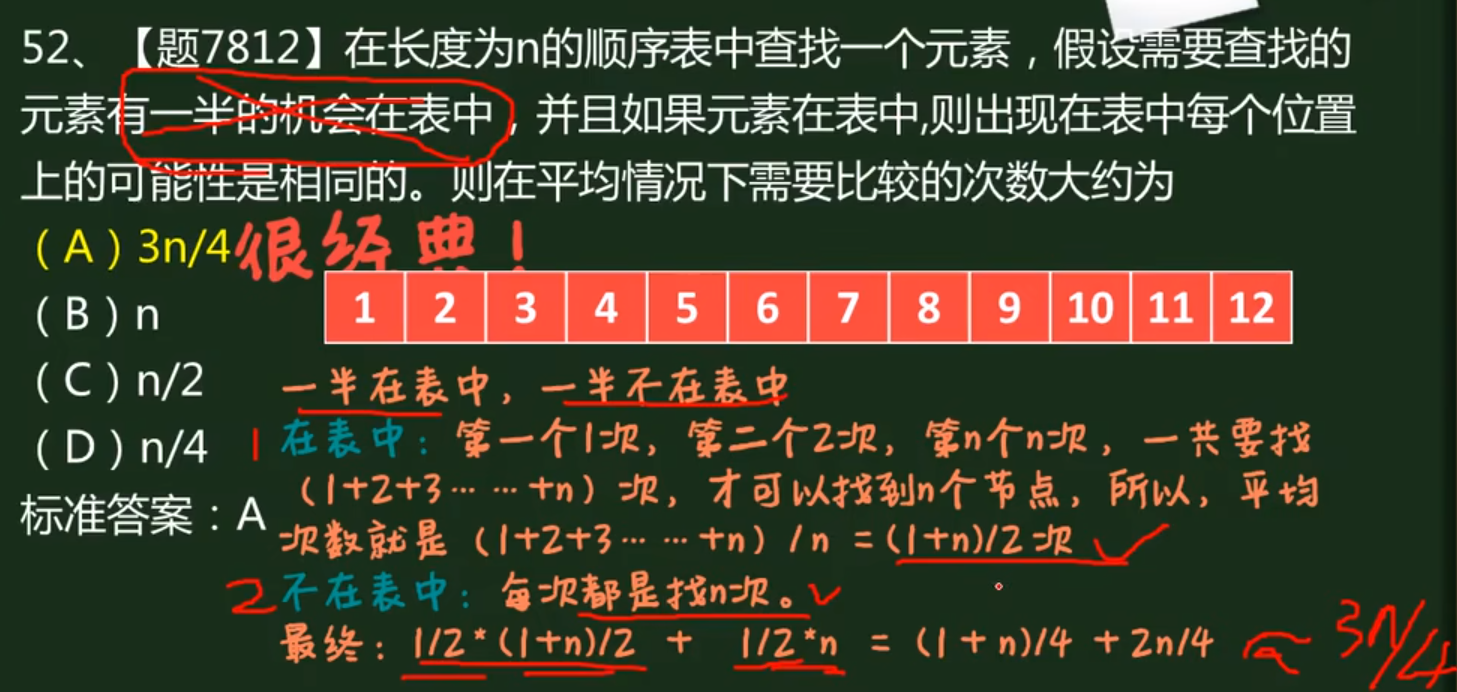 52、【题7812】在长度为n的顺序表中查找一个元素，假设需要查找的
元素有一半的机会在表中，并且如果元素在表中,则出现在表中每个位置
上的可能性是相同的。则在平均情况下需要比较的次数大约为
（A）3n/4 很经典！
（B）n
1 2 3 4 5 6 7 8 9 10 11 12
（C）n/2
一半在表中，一半不在表中
（D）n/4
1 在表中：第一个1次，第二个2次，第n个n次，一共要找
（1+2+3……+n）次，才可以找到n个节点，所以，平均
标准答案：A
次数就是（1+2+3……+n）/n =(1+n)/2次
2 不在表中：每次都是找n次。
最终：1/2*(1+n)/2 + 1/2*n = (1+n)/4 + 2n/4 3n/4